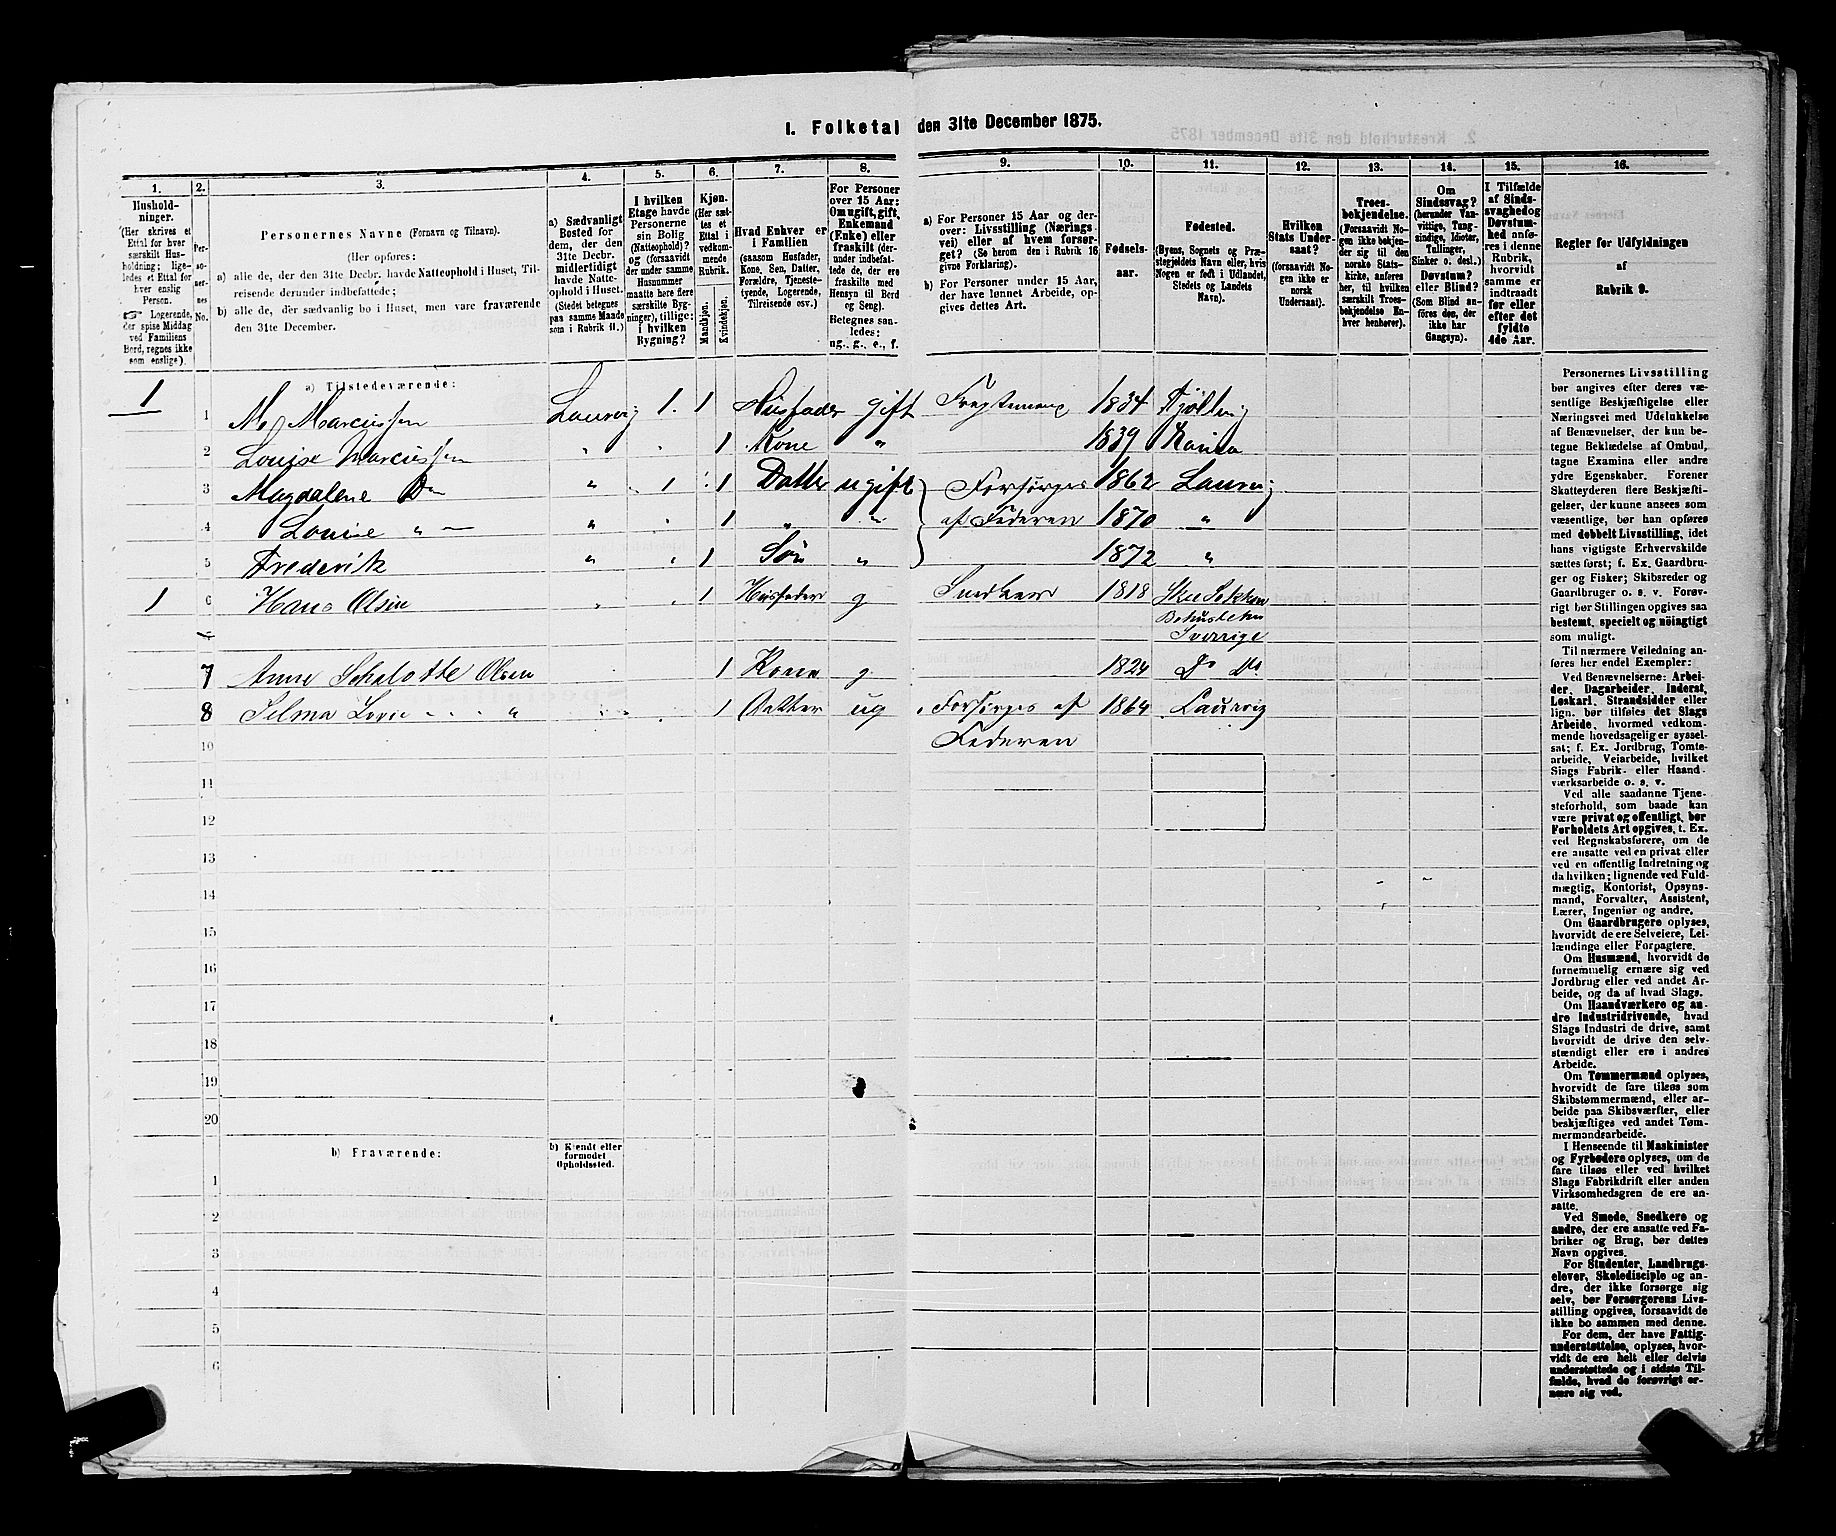 1. Folketal den 31te December 1875.
1.
2.
3.
4.
5.
6.
7.
8.
9.
10.
11.
12.
13.
14.
15.
16.
Hushold-
ninger.
(Her skrives et
Ettal for hver
særskilt Hus-
holdning; lige-
ledes et Ettal for
hver enslig
Person.
☞ Logerende,
der spise Middag
ved Familiens
Bord, regnes ikke
som enslige).
Per-
so-
ner-
nes
No.
Personernes Navne (Fornavn og Tilnavn).
(Her opføres:
a) alle de, der den 31te Decbr. havde Natteophold i Huset, Til-
reisende derunder indbefattede;
b) alle de, der sædvanlig bo i Huset, men vare fraværende
den 31te December.
a) Sædvanligt
Bosted for
dem, der den
31te Decbr.
midlertidigt
havde Natte-
ophold i Huset.
(Stedet betegnes
paa samme Maade
som i Rubrik 11.)
I hvilken
Etage havde
Personerne
sin Bolig
(Natteophold)?
og (forsaavidt
der under samme
Husnummer
maatte høre flere
særskilte Byg-
ninger), tillige:
i hvilken
Bygning?
Kjøn.
(Her sæt-
tes et
Ettal i
vedkom-
mende
Rubrik.
Mandkjøn.
Kvindekjøn.
Hvad Enhver er
i Familien
(saasom Husfader,
Kone, Søn, Datter,
Forældre, Tjeneste-
tyende, Logerende,
Tilreisende osv.)
For Personer
over 15 Aar:
Om ugift, gift,
Enkemand
(Enke) eller
fraskilt (der-
under indbefat-
tede de, der ere
fraskilte med
Hensyn til Bord
og Seng).
Betegnes saa-
ledes:
ug., g., e., f.
a) For Personer 15 Aar og der-
over: Livsstilling (Nærings-
vei) eller af hvem forsør-
get? (Se herom den i Rubrik 16
givne Forklaring).
b) For Personer under 15 Aar,
der have lønnet Arbeide, op-
gives dettes Art.
Fødsels-
aar.
Fødested.
(Byens, Sognets og Præ-
stegjeldets Navn eller, hvis
Nogen er født i Udlandet,
Stedets og Landets
Navn).
Hvilken
Stats Under-
saat?
(forsaavidt No-
gen ikke er
norsk
Undersaat).
Troes-
bekjendelse.
(Forsaavidt No-
gen ikke bekjen-
der sig til den
norske Stats-
kirke, anføres
her, til hvilken
særskilt Troes-
bekjendelse En-
hver henhører).
Om
Sindssvag?
(herunder Van-
vittige, Tung-
sindige, Idioter,
Tullinger,
Sinker o. desl.)
Døvstum?
eller Blind?
(Som Blind an-
føres den, der
ikke har
Gangsyn).
I Tilfælde
af Sinds-
svaghed og
Døvstum-
hed anfø-
res i denne
Rubrik,
hvorvidt
samme er
indtraadt
før eller
efter det
fyldte
4de Aar.
Regler for Udfyldningen
af
Rubrik 9.
a) Tilstedeværende:
1 1 M. Marcussen Laurvig 1. 1 Husfader gift Fragtemand 1834 Tjølling
2 Louise Marcussen " " 1 Kone " 1839 
3 Magdalene Do " 1 1 Datter ugift Forsørges 1862 Laurvig
4 Louise " " " 1 " " af Federen 1870 "
5 Frederik " " 1 Søn " 1872 "
1 6 Hans Olsen " " 1 Husfader g 1818
Sverrige
7 Anne Schalotte Olsen 1 Kone g. 1824 Do Do
8 Selma Lovie " 1 Datter ug Forsørges af 1864 Laurvig
Federen
10
11
12
13
14
15
16
17
18
19
20
b) Fraværende:
b) Kjendt eller
formodet
Opholdssted.
1
2
3
4
5
6
Personernes Livsstilling
bør angives efter deres væ-
sentlige Beskjæftigelse eller
Næringsvei med Udelukkelse
af Benævnelser, der kun be-
tegne Beklædelse af Ombud,
tagne Examina eller andre
ydre Egenskaber. Forener
Skatteyderen flere Beskjæfti-
gelser, der kunne ansees som
væsentlige, bør han opføres
med dobbelt Livsstilling, idet
hans vigtigste Erhvervskilde
sættes først; f. Ex. Gaardbru-
ger og Fisker; Skibsreder og
Gaardbruger o. s. v. Forøv-
rigt bør Stillingen opgives saa
bestemt, specielt og nöiagtigt
som muligt.
Til nærmere Veiledning an-
føres her endel Exempler:
Ved Benævnelserne: Arbei-
der, Dagarbeider, Inderst,
Løskarl, Strandsidder eller
lign. bør tilføies det Slags
Arbeide, hvormed vedkom-
mende hovedsagelig er syssel-
sat; f. Ex. Jordbrug, Tomte-
arbeide, Veiarbeide, hvilket
Slags Fabrik- eller Haand-
værksarbeide o. s. v.
Ved alle saadanne Tjene-
steforhold, som baade kan
være privat og offentligt, bør
Forholdets Art opgives, t. Ex.
ved Regnskabsførere, om de
ere ansatte ved en privat eller
ved en offentlig Indretning og
da hvilken; lignende ved Fuld-
mægtig, Kontorist, Opsyns-
mand, Forvalter, Assistent,
Lærer, Ingeniør og andre.
Om Gaardbrugere oplyses,
hvorvidt de ere Selveiere, Lei-
lændinge eller Forpagtere.
Om Husmænd, hvorvidt de
fornemmelig ernære sig ved
Jordbrug eller ved andet Ar-
beide, og da af hvad Slags.
Om Haandværkere og an-
dre Industridrivende, hvad
Slags Industri de drive, samt
hvorvidt de drive den selv-
stændigt eller ere i andres
Arbeide.
Om Tømmermænd oplyses,
hvorvidt de fare tilsøs som
Skibstømmermænd, eller ar-
beide paa Skibsværfter, eller
beskjæftiges ved andet Tøm-
mermandsarbeide.
I Henseende til Maskinister
og Fyrbødere oplyses, om de
fare tilsøs eller ved hvilket
Slags Fabrikdrift eller anden
Virksomhedsgren de ere an-
satte.
Ved Smede, Snedkere og
andre, der ere ansatte ved Fa-
briker og Brug, bør dettes
Navn opgives.
For Studenter, Landbrugs-
elever, Skoledisciple og an-
dre, der ikke forsørge sig
selv, bør Forsørgerens Livs-
stilling opgives, forsaavidt de
ikke bo sammen med denne.
For dem, der have Fattig-
understøttelse, oplyses, hvor-
vidt de ere helt eller delvis
understøttede og i sidste Til-
fælde, hvad de forøvrigt er-
nære sig ved.